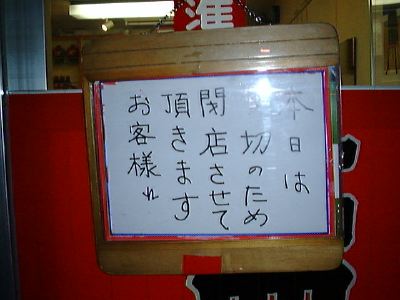 準
本日は
切のため
閉店させて
頂きます
お客様れ